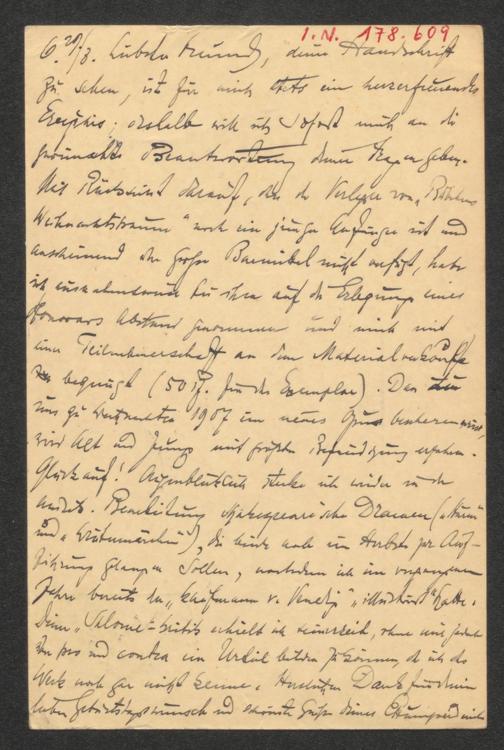 I. N. 178.609
6./8. Liebster Freund, deine Handschrift
zu sehen, ist für mich stets ein herzerfreuendes
Ereignis; deshalb will ich sofort mich an die
gewünschte Beantwortung deiner Fragen geben.
Mit Rücksicht darauf, daß der Verleger von „
Weihnachtstraum" noch ein junger Anfänger ist und
anscheinend über große Baarmittel nicht verfügt, habe
ich ausnahmsweise bei ihm auf die Erlegung eines
Honorars Abstand genommen und mich mit
einer Teilhaberschaft an dem Materialverkaufe
begnügt (50 Pf. für das Exemplar). Daß
uns zu Weihnachten 1907 ein neues Opus bescheren wirst,
wird Alt und Jung mit größter Befriedigung erfahren.
Glückauf! Augenblicklich stecke ich wieder in der
Bearbeitung Shakespeare'scher Dramen („
und „Wintermärchen"), die beide noch im Herbste zur Auf-
führung gelangen sollen, nachdem ich im vergangenen
Jahre bereits den „Kaufmann v. Venedig" hatte.
Deine „Salome"-Kritik erhielt ich seinerzeit, ohne mir jedoch
pro und contra ein Urteil bilden zu können, da ich das
Werk noch gar nicht kenne. Herzlichsten Dank für deinen
lieben Geburtstagswunsch und schönste Grüße deines